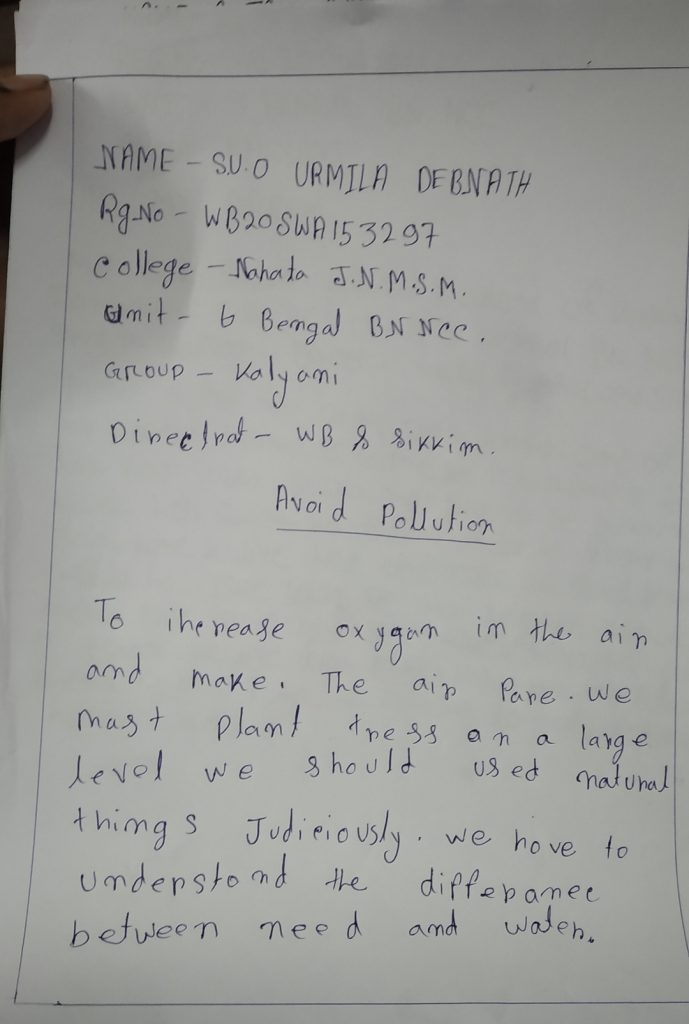 NAME - S.U.O URMILA DEBNATH
Rg.No - WB20SWA153297
College - Nahata J.N.M.S.M.
Unit - 6 Bengal BN NCC.
GROUP - Kalyani
Directrat - WB & Sikkim.
Avoid Pollution
To increase oxygan in the air
and make. The air Pare. we
mast plant tress an a large
level we should used natural
things Judiciously. we hove to
understond the differance
between need and water.